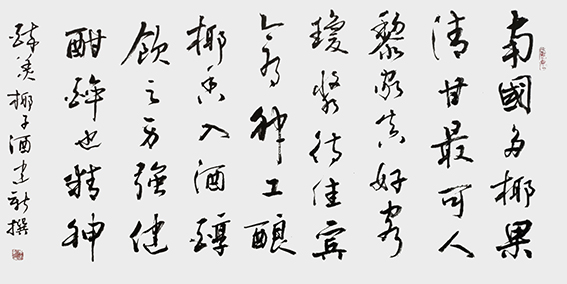 南國多椰果
清甘最可人
黎家真好客
瓊漿待佳賓
神工釀
椰香入酒醇
飲之強健
酣醉也精神
美椰子酒建新撰